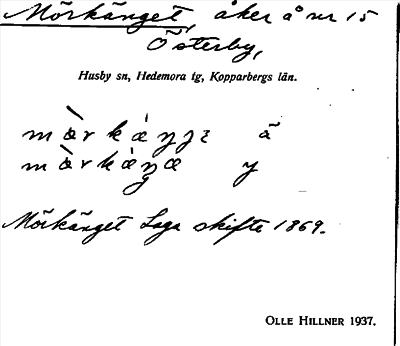 Mörkänget, åker å nr 15
Österby,
Husby sn, Hedemora tg, Kopparbergs län.
Mörkänget Laga skifte 1869.
OLLE HILLNER 1937.